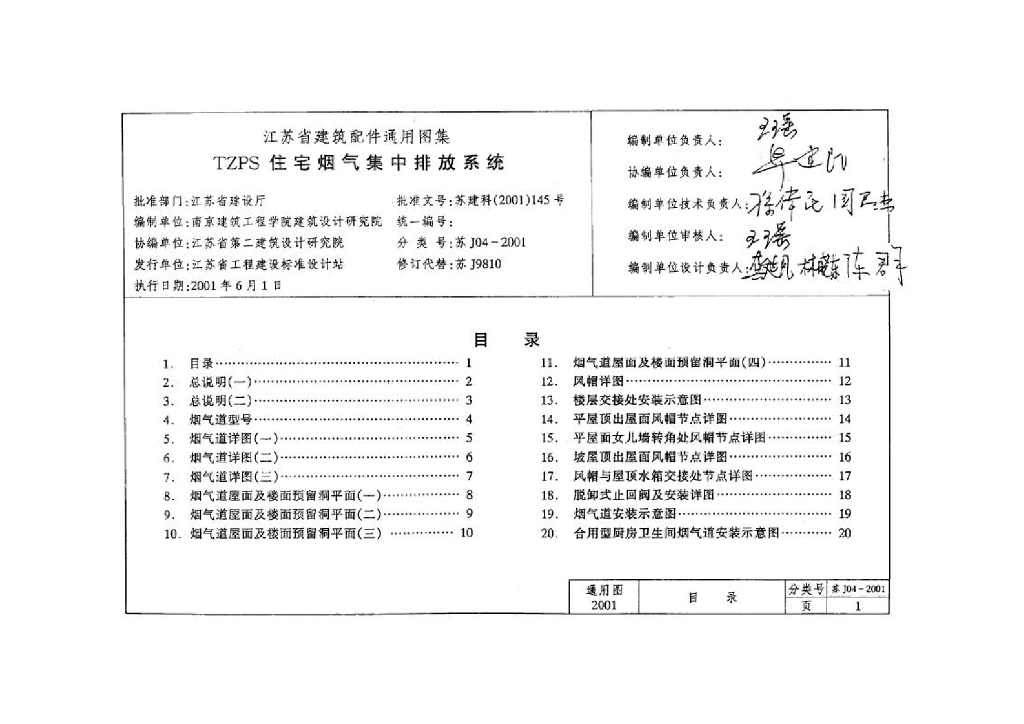 江苏省建筑配件通用图集
TZPS 住宅烟气集中排放系统
批准部门:江苏省建设厅
批准文号:苏建科(2001)145号
编制单位:南京建筑工程学院建筑设计研究院
统一编号:
协编单位:江苏省第二建筑设计研究院
分类号:苏J04-2001
发行单位:江苏省工程建设标准设计站
修订代替:苏J9810
执行日期:2001年6月1日
编制单位负责人:
协编单位负责人:
编制单位技术负责人:
编制单位审核人:
编制单位设计负责人:
目 录
1. 目录…………………………………… 1
2. 总说明(一)…………………………… 2
3. 总说明(二)…………………………… 3
4. 烟气道型号…………………………… 4
5. 烟气道详图(一)……………………… 5
6. 烟气道详图(二)……………………… 6
7. 烟气道详图(三)……………………… 7
8. 烟气道屋面及楼面预留洞平面(一)………… 8
9. 烟气道屋面及楼面预留洞平面(二)………… 9
10. 烟气道屋面及楼面预留洞平面(三)………… 10
11. 烟气道屋面及楼面预留洞平面(四)………… 11
12. 风帽详图…………………………… 12
13. 楼层交接处安装示意图………………… 13
14. 平屋顶出屋面风帽节点详图…………… 14
15. 平屋面女儿墙转角处风帽节点详图……… 15
16. 坡屋顶出屋面风帽节点详图…………… 16
17. 风帽与屋顶水箱交接处节点详图………… 17
18. 脱卸式止回阀及安装详图……………… 18
19. 烟气道安装示意图…………………… 19
20. 合用型厨房卫生间烟气道安装示意图……… 20
通用图
2001
目 录
分类号 苏J04-2001
页 1